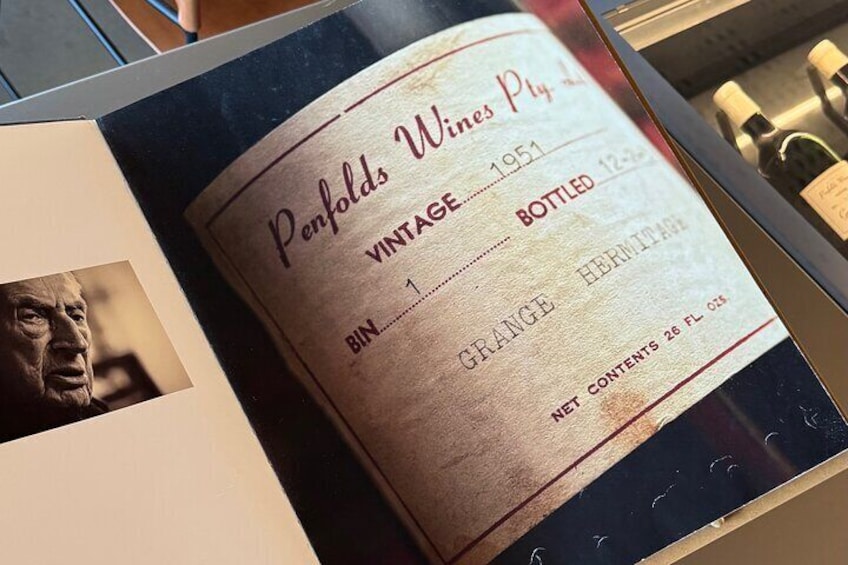 Penfolds Wines Pty.
VINTAGE 1951
BOTTLED
BIN 1
GRANGE HERMITAGE
NET CONTENTS 26 FL. OZS.